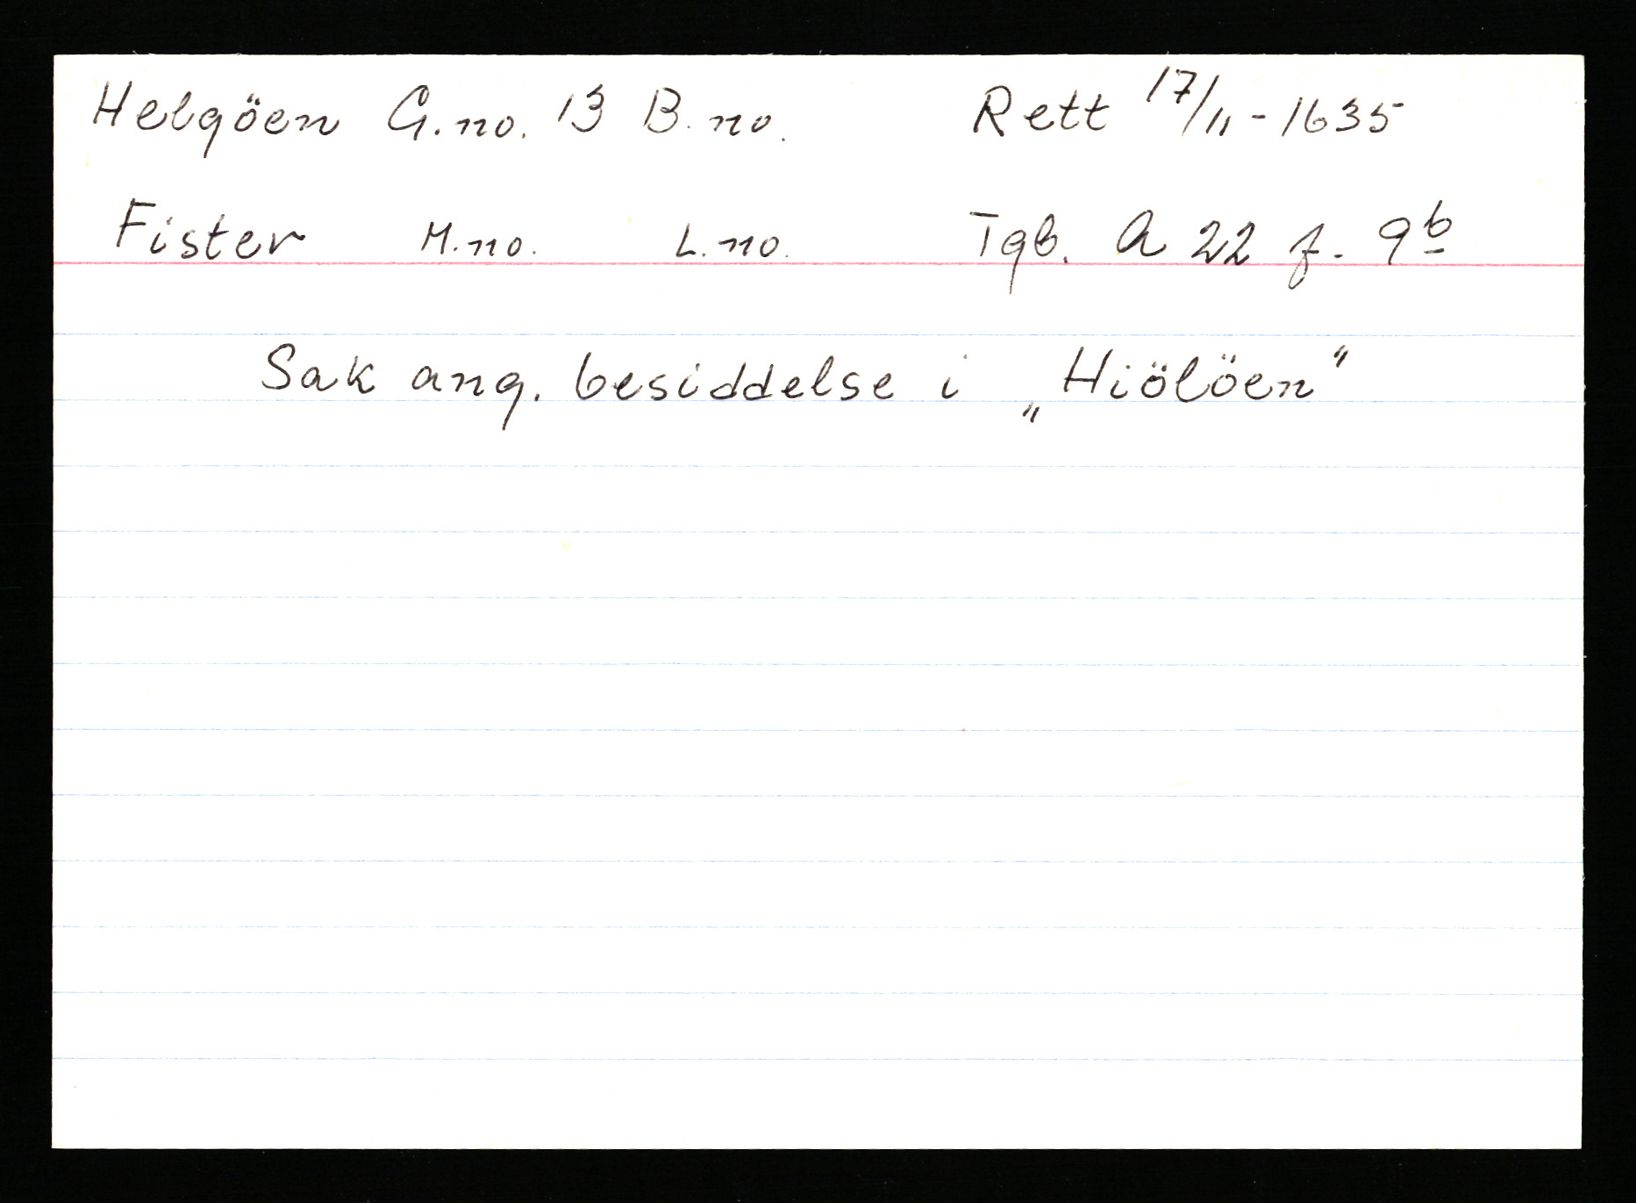 Helgöen G.no. 13 B.no. Rett 17/11-1635
Fister M.no. L.no. Tgb. A 22 f. 9b
Sak ang. besiddelse i „Hiölöen"